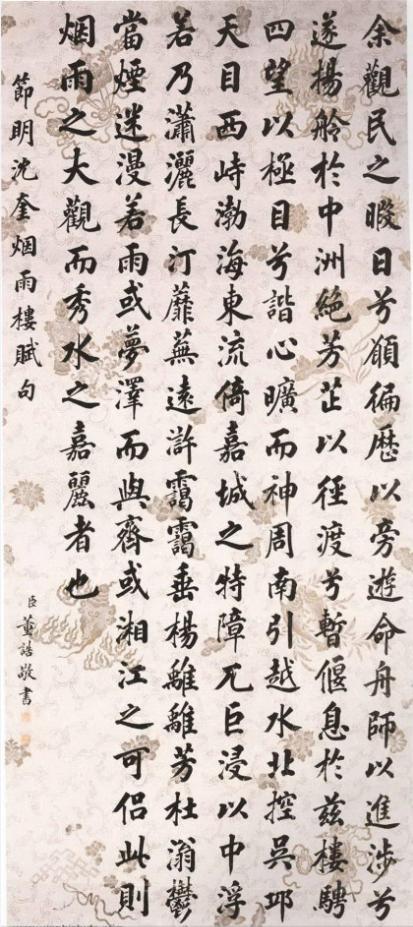 余觀民之暇日兮願徧歷以旁遊命舟師以進涉兮
遂揚舲於中洲絶芳芷以徑渡兮暫偃息於茲樓騁
四望以極目兮諧心曠而神周南引越水北控吳邛
天目西峙渤海東流倚嘉城之特障兀巨浸以中浮
若乃瀟灑長汀蘼蕪遠滸靄靄垂楊離離芳杜滃鬱
當煙迷漫若雨或夢澤而與齊或湘江之可侶此則
烟雨之大觀而秀水之嘉麗者也
節明沈奎烟雨樓賦句
臣董誥敬書